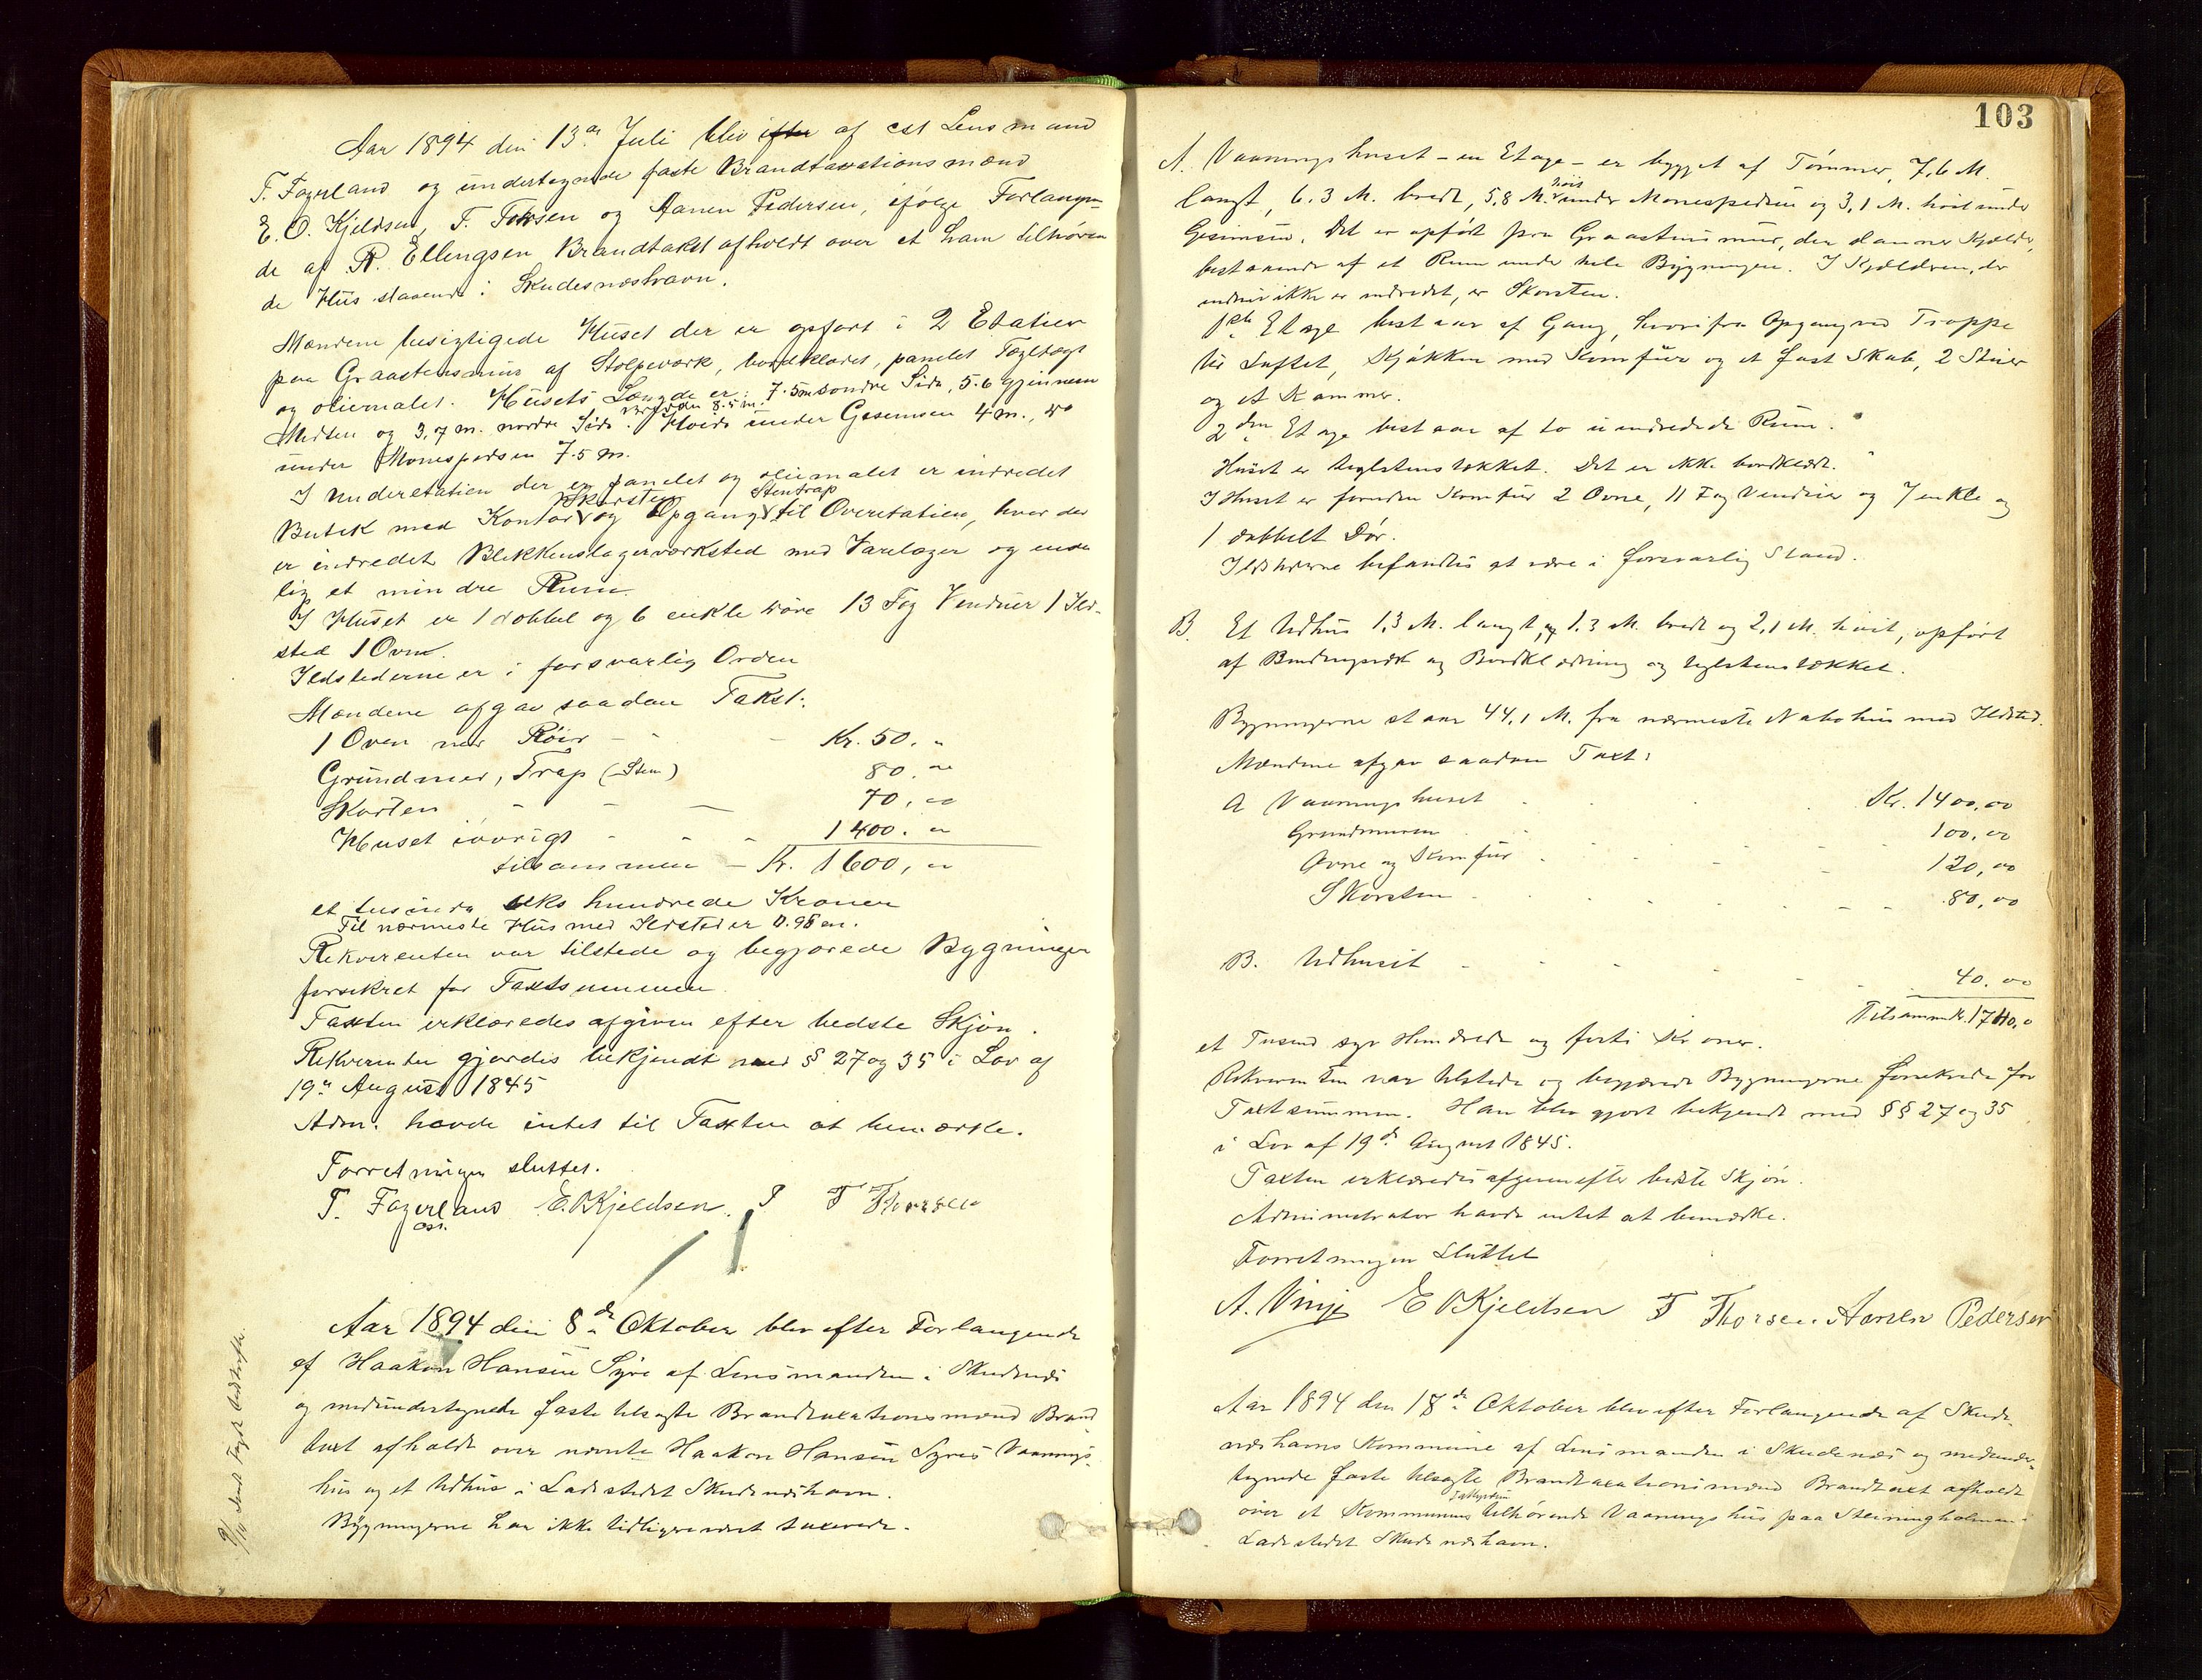 Aar 1894 den 13de Juli blev efter af cst Lensmand
T. Fagerland og undertegnede faste Brandtaxationsmænd
E. O. Kjeldsen, T. Torsen og Aanen Pedersen, ifølge Forlangen-
de af R. Ellingsen Brandtakst afholdt over et ham tilhøren
de Hus staaende i Skudesneshavn.
Mændene besigtigede Huset der er opført i 2 Etasier
paa Graastensmur af Stolpeværk, bordklædt, panelet Tægltægt
og oliemalet. Husets Længde er: 7.5m søndre Side, 5.6 gjennem
Midten og 3,7 m. nordre Side. Bredden 8.5 m. Høide under Gesemsen 4 m., do
under Mønespedsen 7.5 m.
I Underetatien der er panelet og oliemalet er indredet
Butik med Kontor Skorsten og Opgang Stentrap til Overetatien, hvor der
er indredet Blikkenslagerværksted med Varelager og ende
lig et mindre Rum
I Huset er 1 dobbel og 6 enkle Døre 13 Fag Venduer 1 Ild-
sted 1 Ovn.
Ildstederne er i forsvarlig Orden
Mændene afgav saadan Takst:
1 Oven med Røir - Kr. 50. "
Grundmur, Trap (Sten) 80. "
Skorsten - - 70, "
Huset iøvrigt - - - 1400. "
tilsammen - Kr. 1600, "
et tusinde seks hundrede Kroner
Til nærmeste Hus med Ildsted er 0.96 m.
Rekvirenten var tilstede og begjærede Bygningen
forsikret for Taxtsummen
Taxten erklæredes afgiven efter bedste Skjøn.
Rekvirenten gjordes bekjendt med § 27 og 35 i Lov af
19de August 1845
Adm. havde intet til Taxten at bemærke.
Forretningen sluttet.
T. Fagerland E. O Kjeldsen. P T Thorsen
cst.
Aar 1894 den 8de Oktober blev efter Forlangende
af Haakon Hansen Syre af Lensmanden i Skudenæs
og medundertegnede faste tilsagte Brandtaxationsmænd Brand
taxt afholdt over nævnte Haakon Hansen Syres Vaanings-
hus og et Udhus i Ladestedet Skudesnæshavn.
Bygningerne har ikke tidligere været taxerede.
103
A. Vaaningshuset - en Etage - er bygget af Tømmer, 7,6 M.
langt, 6.3 M. bredt, 5,8 M. høit under Monespedsen og 3,1 M. høit under
Gesimsen. Det er opført paa Graastensmur, der danner Kjælder,
bestaaende af et Rum under hele Bygningen. I Kjælderen, der
endnu ikke er indredet, er Skorsten.
1ste Etage bestaar af Gang, hvorifra Opgang ved Trappe
til Loftet, Kjøkken med Komfur og et fast Skab, 2 Stuer
og et Kammer.
2den Etage bestaar af to uindredede Rum.
Huset er teglstenstækket. Det er ikke bordklædt.
I Huset er foruden Komfur 2 Ovne, 11 Fag Venduer og 7 enkle og
1 dobbelt Dør.
Ildstederne befandtes at være i forsvarlig Stand.
B. Et Udhus 1,3 M. langt, og 1,3 M. bredt og 2,1 M. høit, opført
af Bindingsværk og Bordklædning og teglstenstækket.
Bygningerne staar 44,1 M. fra nærmeste Nabohus med Ildsted.
Mændene afgav saadan Taxt:
A Vaaningshuset Kr. 1400,00
Grundmuren 100,00
Ovne og Komfur 120,00
Skorsten 80,00
B. Udhuset 40.00
Tilsammen Kr. 1740,0
et Tusend syv Hundrede og forti Kroner.
Rekvirenten var tilstede og begjærede Bygningerne forsikrede for
Taxtsummen. Han blev gjort bekjendt med §§ 27 og 35
i Lov af 19de August 1845.
Taxten erklæredes afgiven efter bedste Skjøn.
Administrator havde intet at bemærke.
Forretningen Sluttet
A. Vinje E O Kjeldsen T Thorsen. Aanen Pedersen
Aar 1894 den 18de Oktober blev efter Forlangende af Skude-
næshavns Kommune af Lensmanden i Skudenæs og medunder-
tegnede faste tilsagte Brandtaxationsmænd Brandtaxt afholdt
over et Kommunens tilhørende Vaaningshus paa Steiningholmen i
Ladestedet Skudenæshavn.